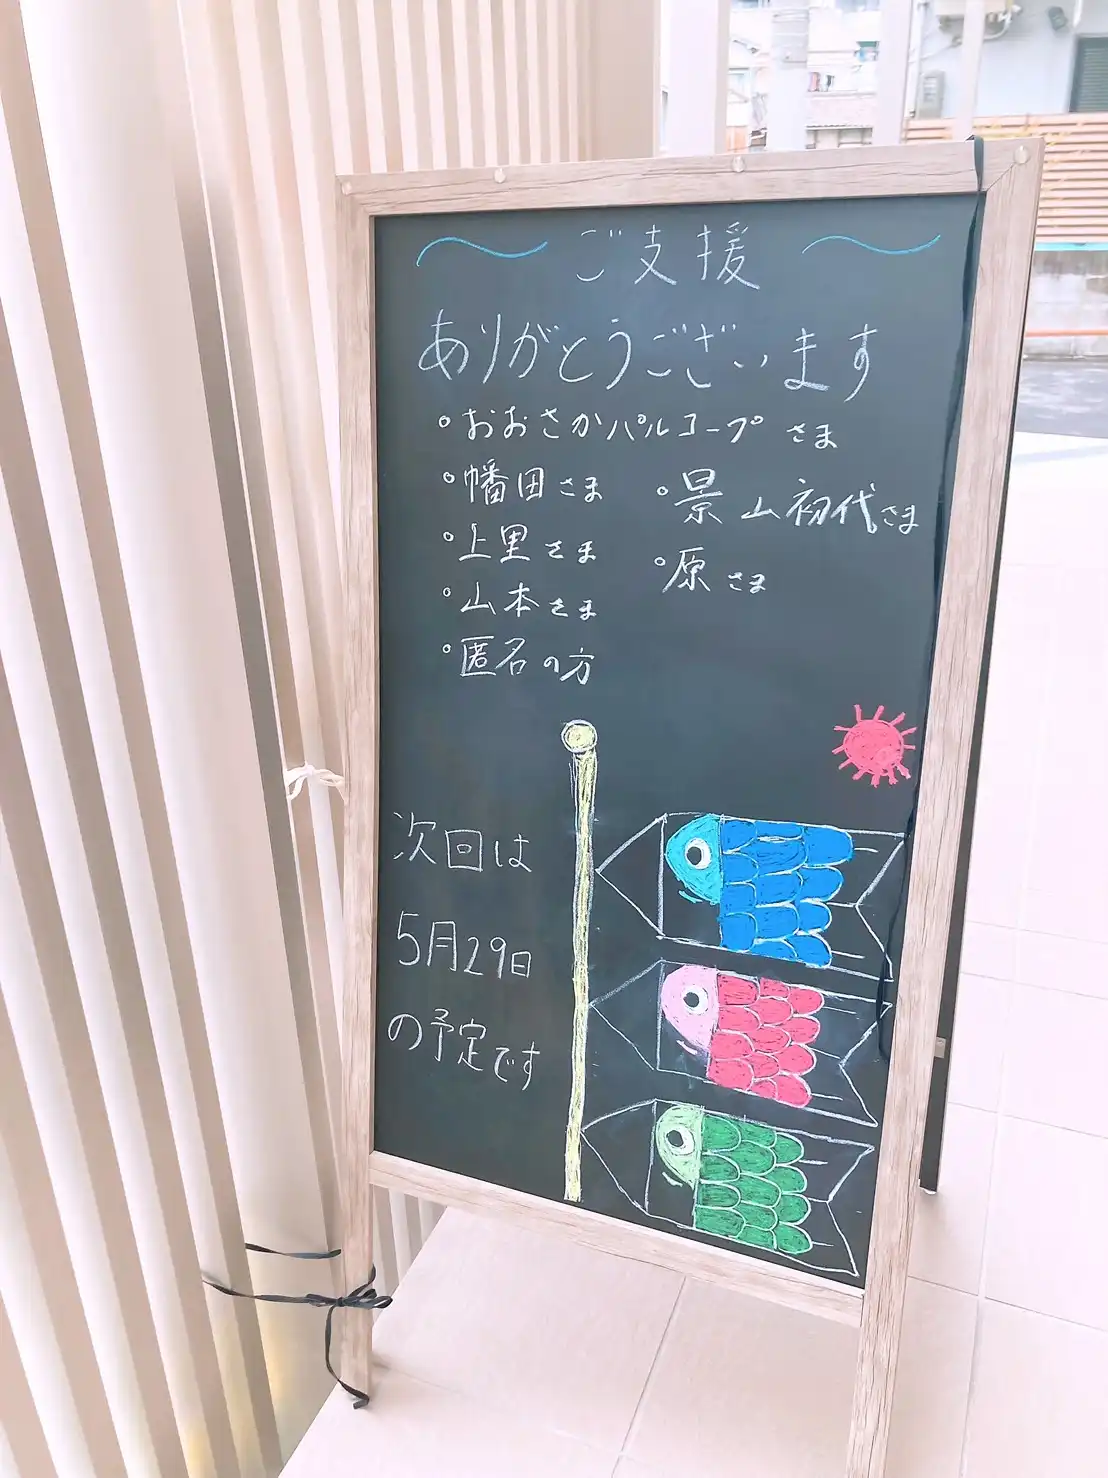 ご支援
ありがとうございます
・おおさかパルコープ さま
・幡田さま
・上里さま
・山本さま
・匿名の方
・景山初代さま
・原さま
次回は
5月29日
の予定です